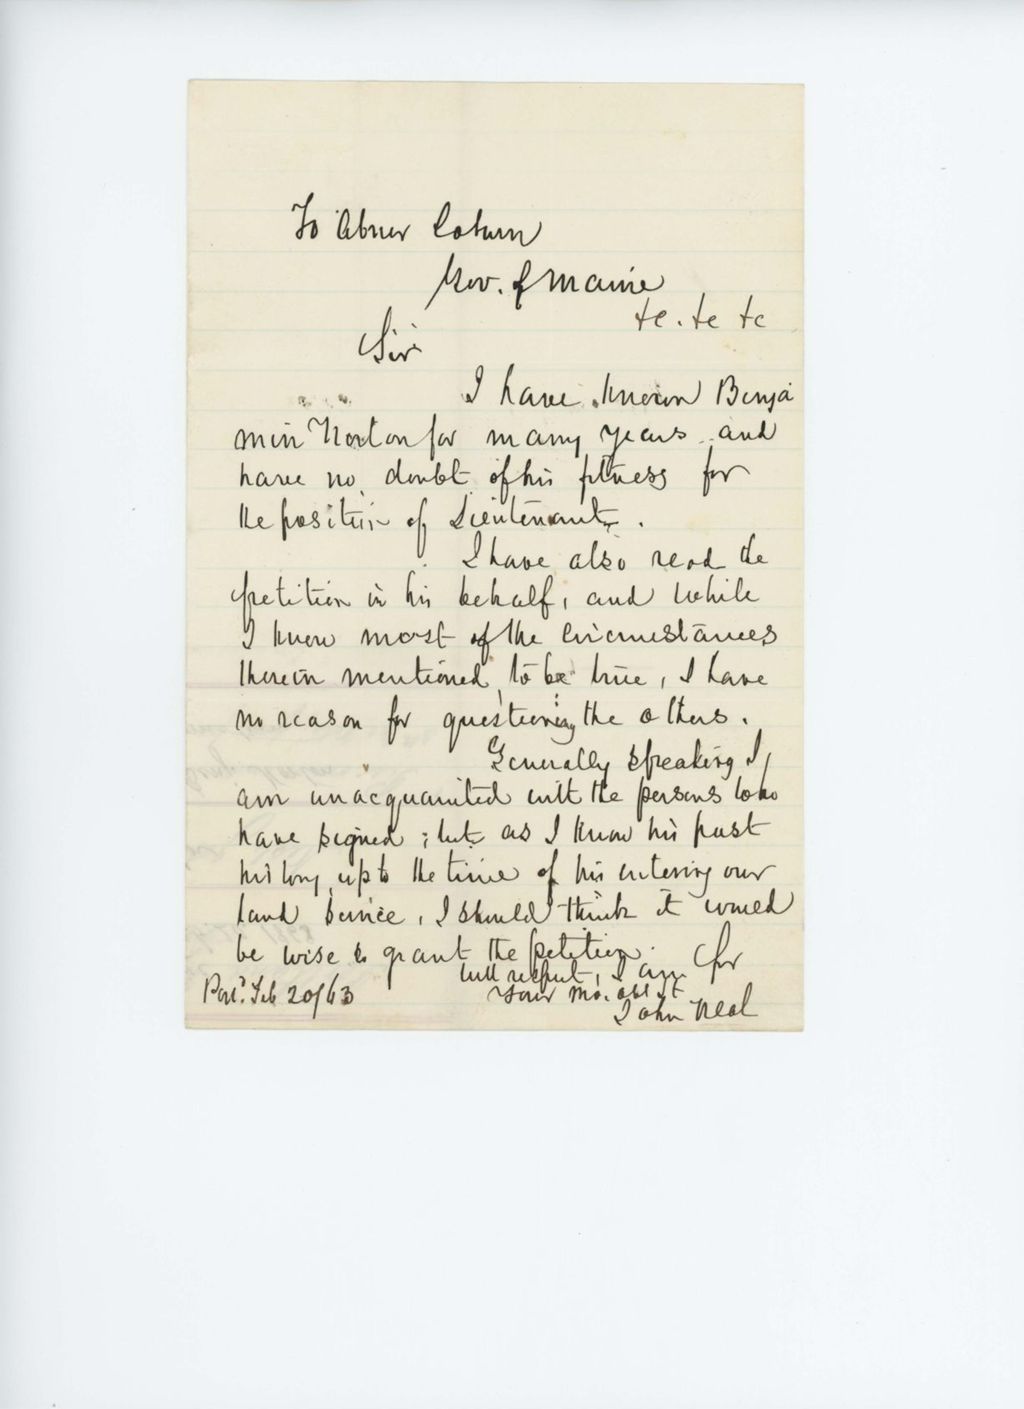 To Abner Coburn
Gov. of Maine
&c. &c &c
Sir
I have known Benja
min Norton for many years and
have no doubt of his fitness for
the position of Lieutenant.
I have also read the
petition in his behalf, and while
I know most of the circumstances
therein mentioned, to be true, I have
no reason for questioning the others.
Generally speaking I
am unacquainted with the persons who
have signed; but as I know his past
history, up to the time of his entering our
land service, I should think it would
be wise to grant the petition. for
with respect, I am
Your Mo. obt St
Port.d Feb 20/63
John Neal